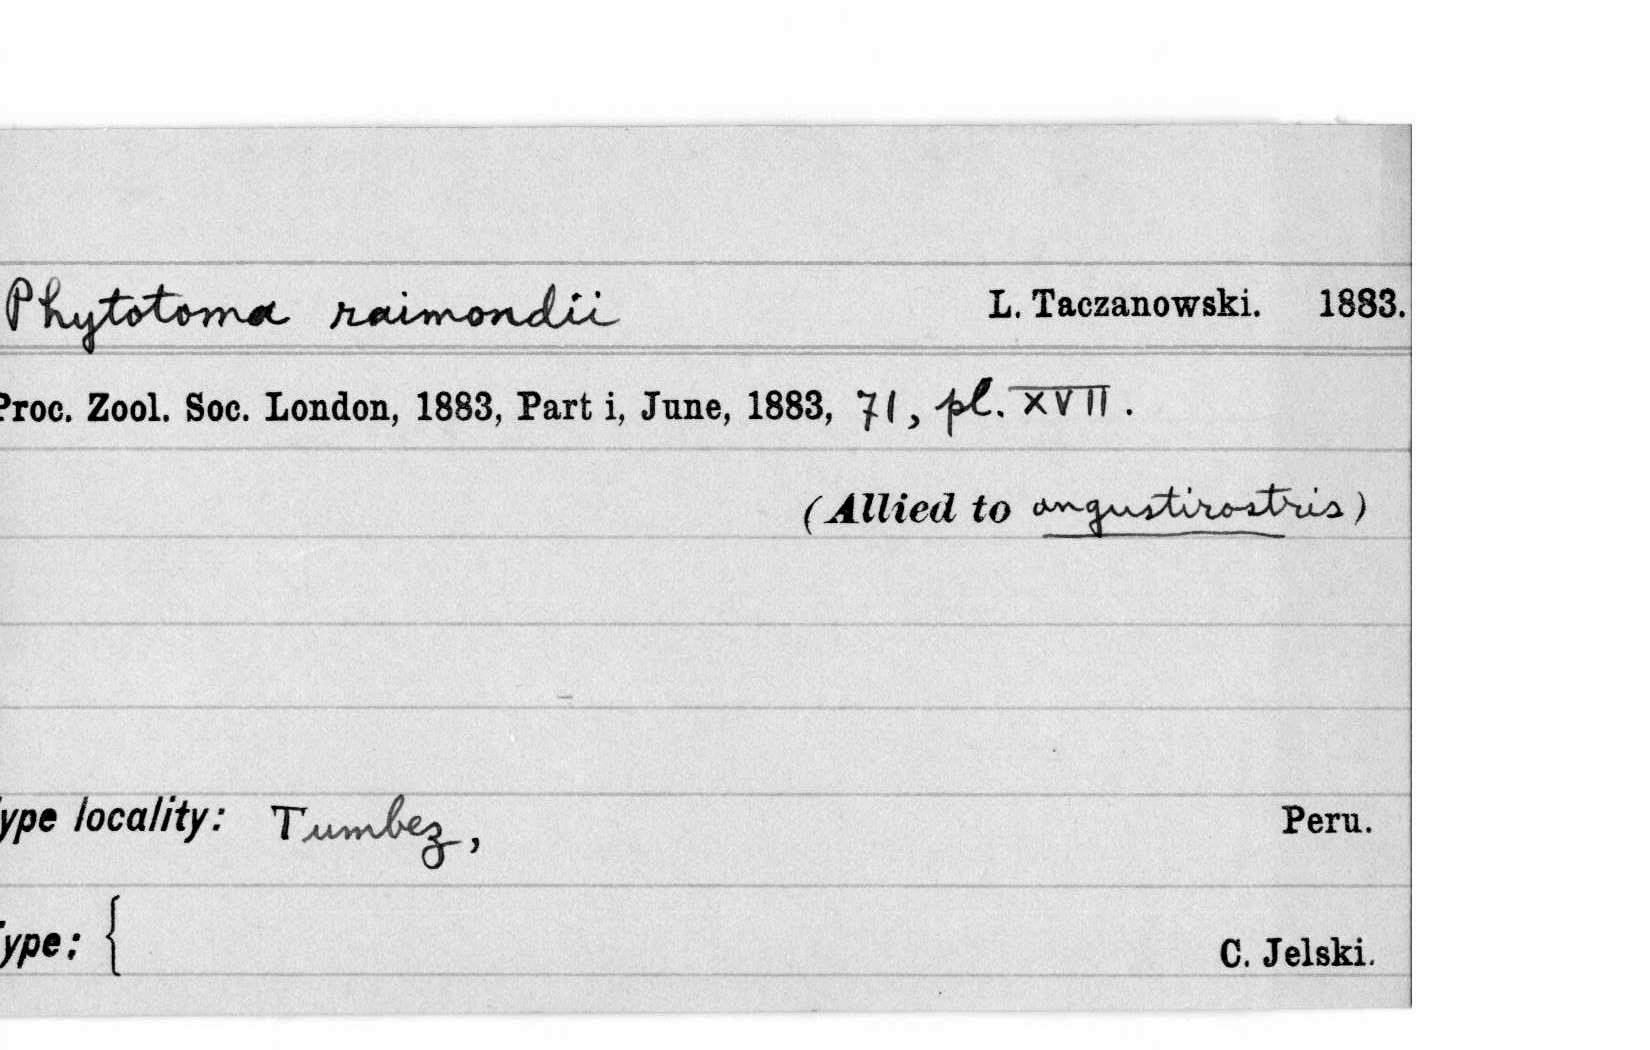 Phytotoma raimondii L. Taczanowski. 1883.
Proc. Zool. Soc. London, 1883, Part i, June, 1883, 71, pl. XVII.
(Allied to angustirostris)
ype locality: Tumbez, Peru.
ype: { C. Jelski.